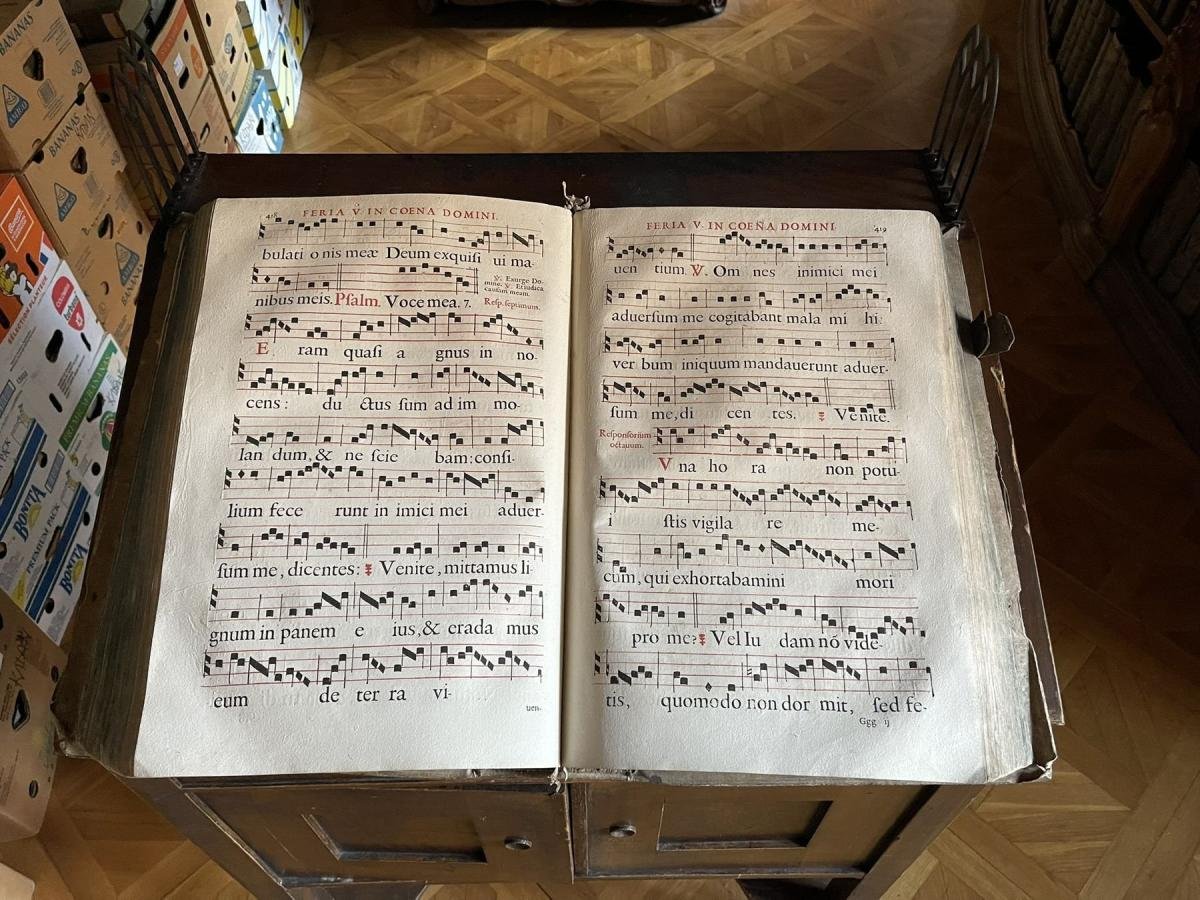 BANANAS
BANANAS
AMIGO
BANANAS
BONITA
PREMIUM PACK
BONITA
418
FERIA V IN COENA DOMINI.
bulati o nis meæ Deum exquiſi ui ma-
nibus meis. Pſalm. Voce mea. 7.
℣. Exurge Do-
mine. ℣. Et iudica
cauſam meam.
Reſp. ſeptimum.
E ram quaſi a gnus in no-
cens : du ctus ſum ad im mo-
lan dum, & ne ſcie bam: conſi-
lium fece runt in imici mei aduer-
ſum me, dicentes: Venite, mittamus li-
gnum in panem e ius, & erada mus
eum de ter ra vi-
uen-
FERIA V. IN COENA DOMINI
419
uen tium. ℣. Om nes inimici mei
aduerſum me cogitabant mala mi hi:
ver bum iniquum mandauerunt aduer-
ſum me, di cen tes. Venite.
Reſponſorium
octauum.
V na ho ra non potu-
i ſtis vigila re me-
cum, qui exhortabamini mori
pro me? Vel Iu dam nõ vide-
tis, quomodo non dor mit, ſed fe-
Ggg ij